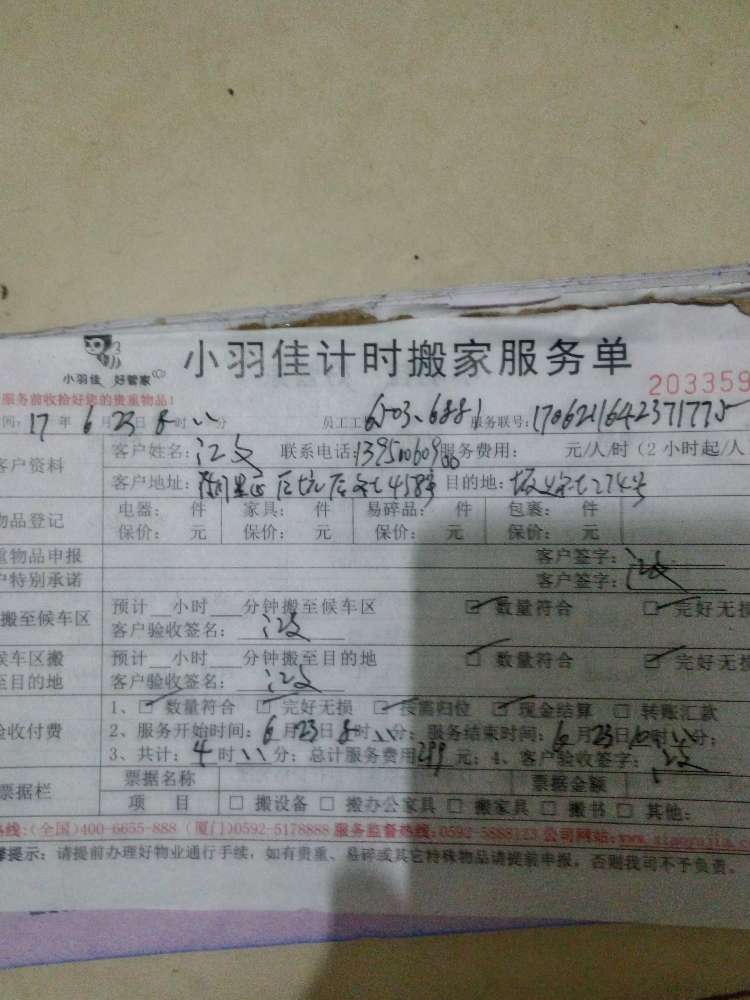 小羽佳 好管家
小羽佳计时搬家服务单
服务前收拾好您的贵重物品!
203359
间: 17 年 6 月 23 日 8 时 分 员工工 6503、6881 服务联号: 170621642371775
客户资料
客户姓名: 江 联系电话: 服务费用: 元/人/时 (2 小时起/人
客户地址: 后坑后社458号 目的地: 社274号
物品登记
电器: 件 家具: 件 易碎品: 件 包裹: 件
保价: 元 保价: 元 保价: 元 保价: 元
重物品申报 客户签字: 江
户特别承诺 客户签字: 江
搬至候车区
预计__小时____分钟搬至候车区 ☑ 数量符合 ☑ 完好无损
客户验收签名: 江
候车区搬至目的地
预计__小时____分钟搬至目的地 ☑ 数量符合 ☑ 完好无损
客户验收签名: 江
验收付费
1、☑ 数量符合 ☑ 完好无损 ☑ 按需归位 ☑ 现金结算 □ 转账汇款
2、服务开始时间: 6 月 23 日 8 时 分; 服务结束时间: 6 月 23 日 10 时 分;
3、共计: 4 时 分; 总计服务费用 299 元; 4、客户验收签字: 江
票据栏
票据名称 票据金额
项 目 □ 搬设备 □ 搬办公家具 □ 搬家具 □ 搬书 □ 其他:
热线:(全国)400-6655-888 (厦门)0592-5178888 服务监督热线:0592-5888123 公司网站:www.xiaoyujia.com
馨提示: 请提前办理好物业通行手续, 如有贵重、易碎或其它特殊物品请提前申报, 否则我司不予负责。